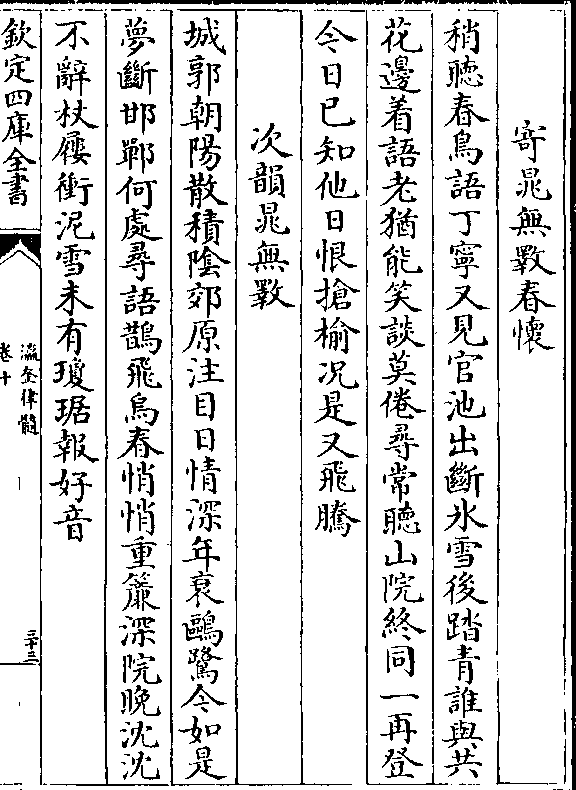 寄晁無斁春懷
稍聽春鳥語丁寧又見官池出斷氷雪後踏青誰與共
花邊着語老猶能笑談莫倦尋常聽山院終同一再登
今日已知他日恨搶榆况是又飛騰
次韻晁無斁
城郭朝陽散積陰郊原注目日情深年衰鷗鷺今如是
夢斷邯鄲何處尋語鵲飛烏春悄悄重簾深院晚沈沈
不辭杖屨衝泥雪未有瓊琚報好音
欽定四庫全書
瀛奎律髓
卷十
三十三